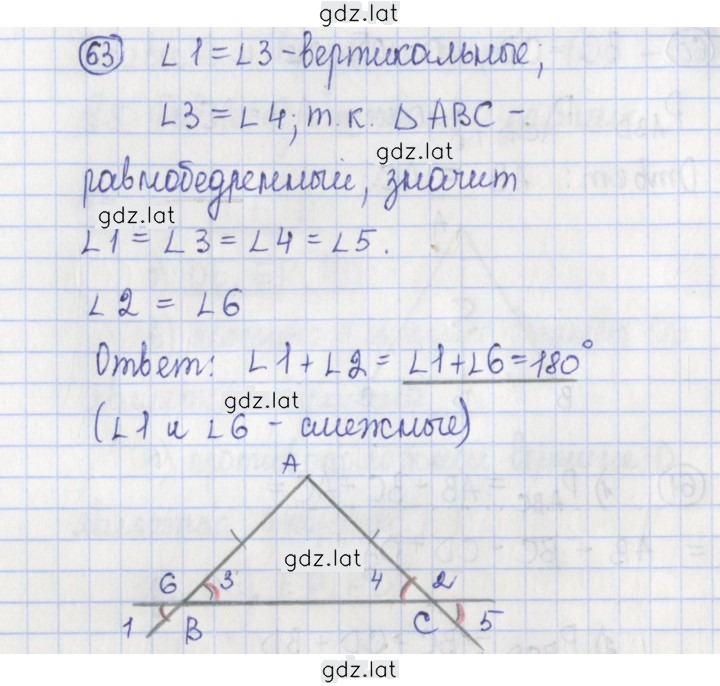 gdz.lat
63 ∠1 = ∠3 - вертикальные;
∠3 = ∠4; т.к. △ABC -
gdz.lat
равнобедренный, значит
gdz.lat
∠1 = ∠3 = ∠4 = ∠5.
∠2 = ∠6
Ответ: ∠1 + ∠2 = ∠1 + ∠6 = 180°
gdz.lat
(∠1 и ∠6 - смежные)
A
gdz.lat
6 3 4 2
1 B C 5
gdz.lat